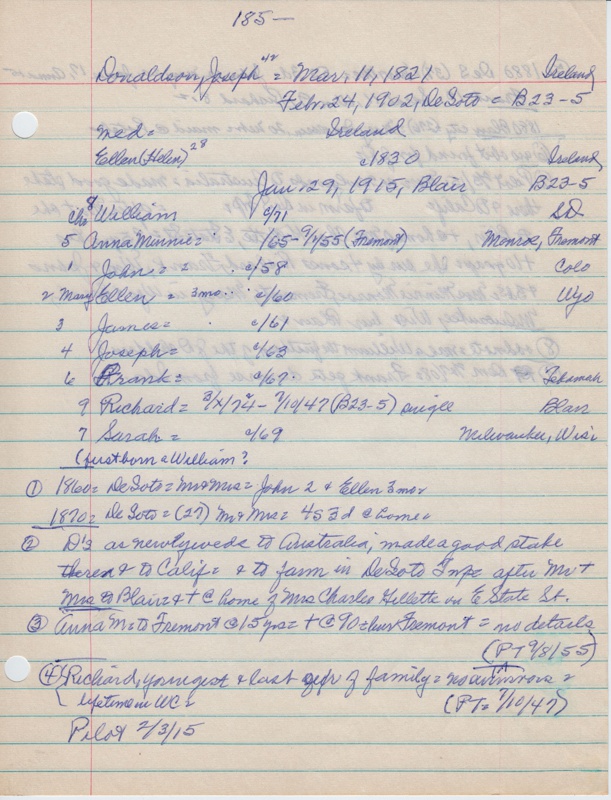 185—
Donaldson, Joseph 42 = Mar, 11, 1821 Ireland
Feb. 24, 1902, De Soto = B23-5
med = Ireland
Ellen (Helen) 28 c1830 Ireland
Jan. 29, 1915, Blair B23-5
8 William c/71 SD
5 Anna Minnie = 1/65-9/4/55 (Fremont) Monroe, Fremont
1 John = 2 c/58 Colo
2 Mary Ellen = 3mo. c/60 Wyo
3 James = c/61
4 Joseph = c/63
6 Frank = c/67. Tekamah
9 Richard = 3/X/74 - 7/10/47 (B23-5) single Blair
7 Sarah = c/69 Milwaukee, Wis.
(first born = William?
① 1860 = De Soto = Mr & Mrs = John 2 & Ellen 3mo.
1870 = De Soto = (27) Mr & Mrs = 4s 3d @ home.
② D's as newlyweds to Australia, made a good stake
there & to Calif = & to farm in De Soto Twp = after Mr +
Mrs to Blair & + @ home of Mrs Charles Gillette on E State St.
③ Anna M = to Fremont @ 15 yrs = + @ 90 = her Fremont = no details
(PT 9/8/55)
④ {Richard, youngest & last of family = no survivors =
lifetime in WC = (PT = 7/10/47)
Pilot 2/3/15